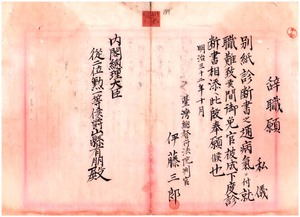 辞職願
私儀
別紙診断書之通病気ニ付就
職難致候間御免官被成下度診
断書相添此段奉願候也
明治三十二年十月
臺灣総督府法院判官
伊藤三郎
内閣総理大臣
従二位勲一等侯爵山縣有朋殿